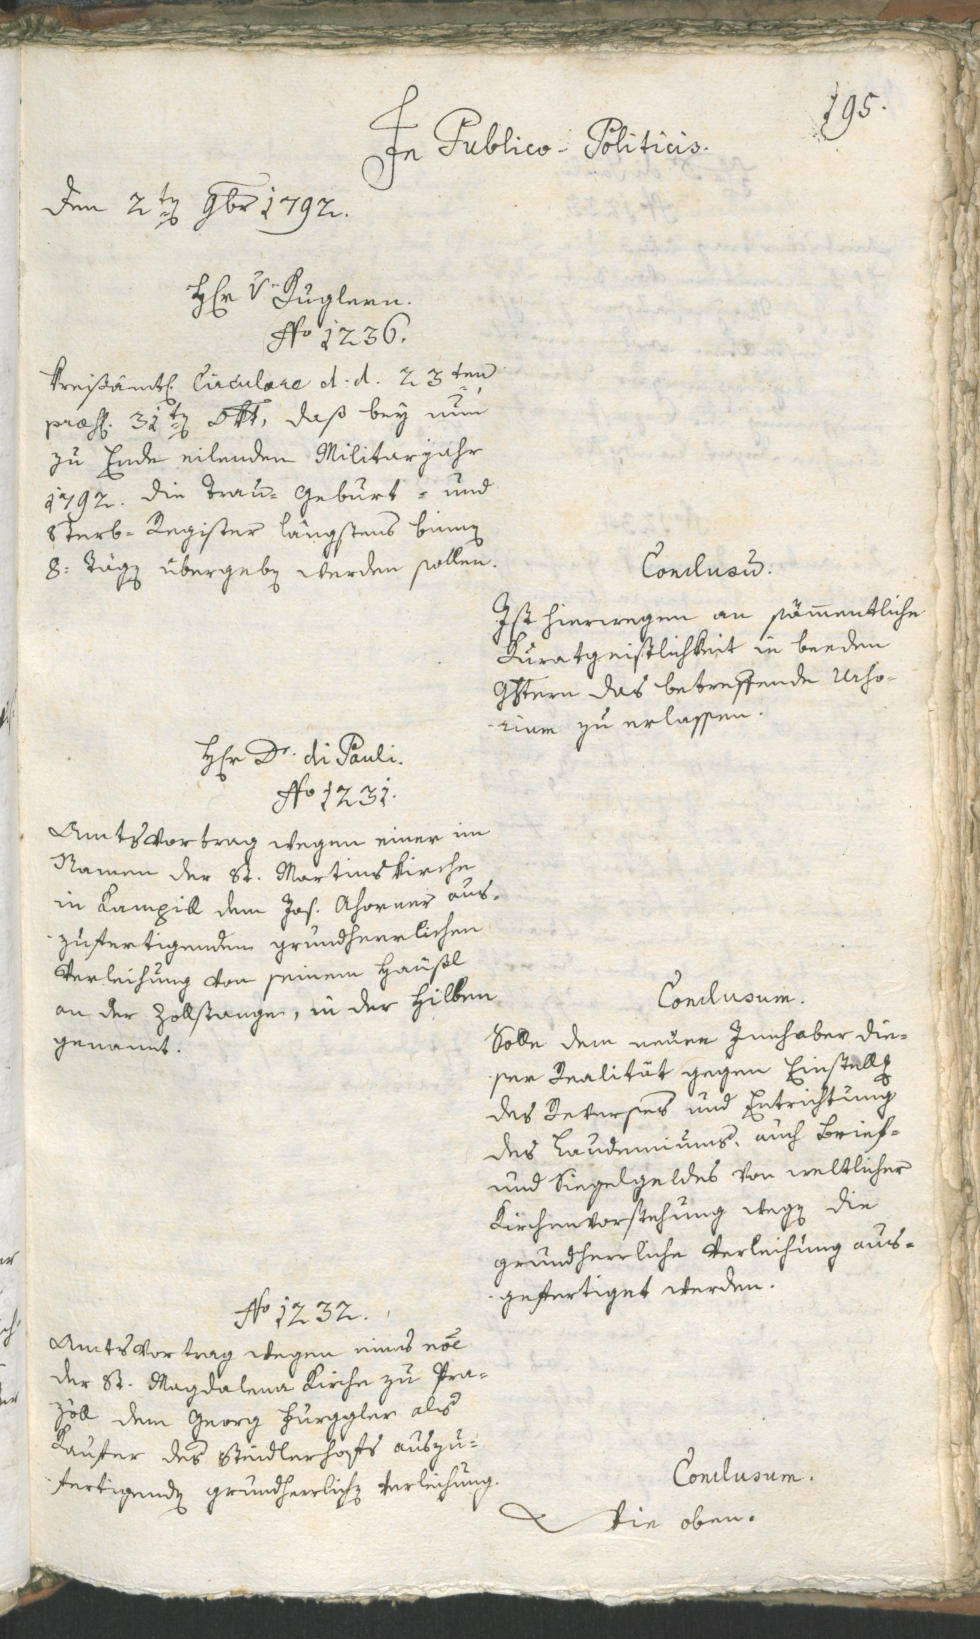 195.
In Publico-Politicis.
Den 2ten 9br 1792.
Hr v Kuglern.
No 1236.
Kreißämtl. Circulare d: d. 23ten
præs. 31ten Okt, daß bey nun
zu Ende eilenden Militarjahr
1792. die Trau- Geburt- und
Sterb-Register längstens binnen
8: Tägen übergeben werden sollen.
Conclusum.
Ist hierwegen an sämmentliche
Kuratgeistlichkeit in beeden
Ghtern das betreffende Urho-
rium zu erlassen.
Hr Dr. di Pauli.
No 1231.
Amtsvortrag wegen einer im
Namen der St. Martinskirche
in Kampill dem Jos. Ahorner aus-
zufertigenden grundherrlichen
Verleihung von seinem Häußl
an der Zollstange, in der Hilben
genannt.
Conclusum.
Solle dem neuen Innhaber die-
ser Realität gegen Einstellung
des Reverses und Entrichtung
des Laudemiums, auch Brief-
und Siegelgeldes von weltlicher
Kirchenvorstehung wegen die
grundherrliche Verleihung aus-
gefertiget werden.
No 1232.
Amtsvortrag wegen eines noe
der St. Magdalena Kirche zu Pra-
zöll dem Georg Purggler als
Kaufer des Steidlerhofs auszu-
fertigenden grundherrlichen Verleihung.
Conclusum.
Wie oben.